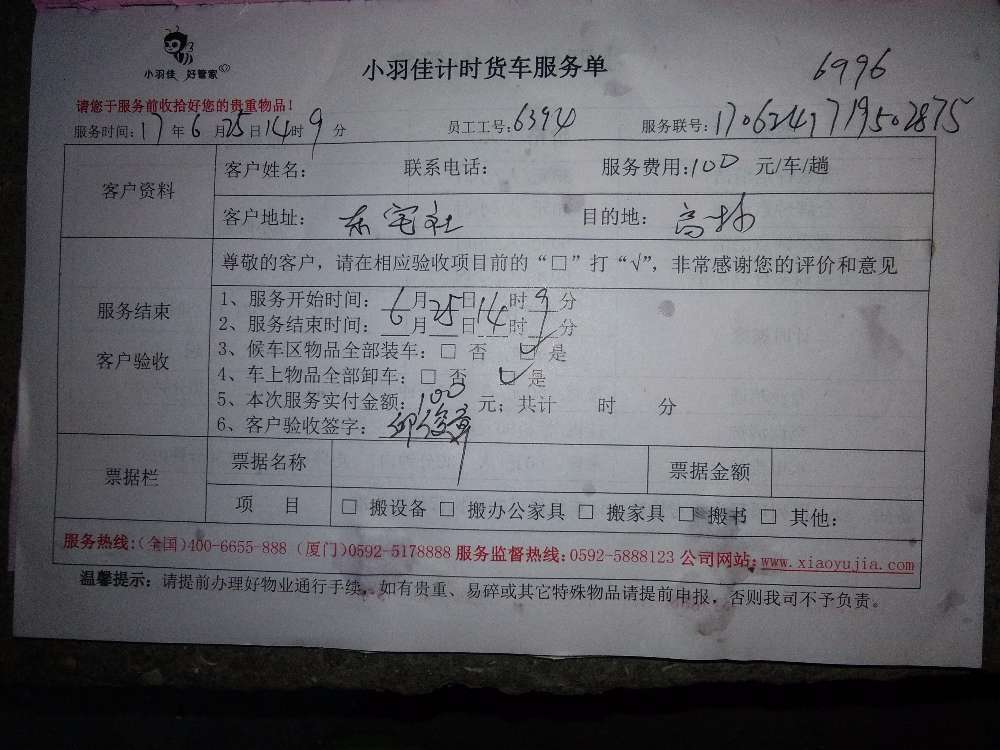 小羽佳 好管家
小羽佳计时货车服务单
6996
请您于服务前收拾好您的贵重物品！
服务时间：17年6月25日14时9分 员工工号：6394 服务联号：1706247719502875
客户资料
客户姓名： 联系电话： 服务费用：100 元/车/趟
客户地址： 东宅社 目的地： 高林
服务结束
客户验收
尊敬的客户，请在相应验收项目前的“□”打“√”，非常感谢您的评价和意见
1、服务开始时间：6月25日14时9分
2、服务结束时间：月日时分
3、候车区物品全部装车：□ 否 ☑ 是
4、车上物品全部卸车：□ 否 ☑ 是
5、本次服务实付金额：100 元；共计 时 分
6、客户验收签字：
票据栏
票据名称 票据金额
项 目 □ 搬设备 □ 搬办公家具 □ 搬家具 □ 搬书 □ 其他：
服务热线：（全国）400-6655-888（厦门）0592-5178888 服务监督热线：0592-5888123 公司网站：www.xiaoyujia.com
温馨提示：请提前办理好物业通行手续，如有贵重、易碎或其它特殊物品请提前申报，否则我司不予负责。